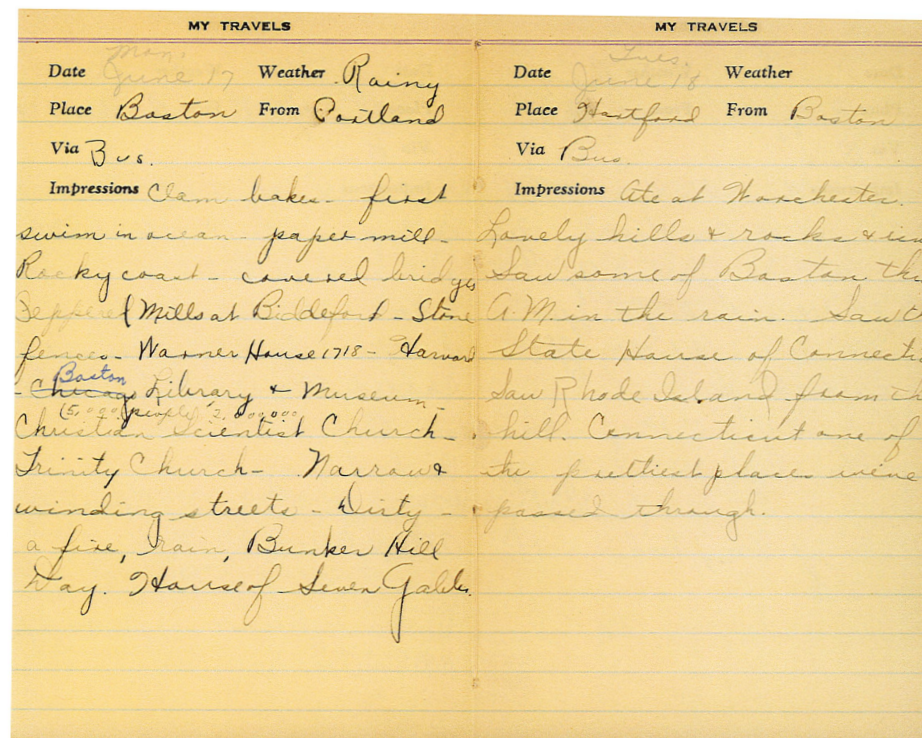 MY TRAVELS
Mon.
Date June 17 Weather Rainy
Place Boston From Portland
Via Bus.
Impressions Clam bakes - first
swim in ocean - paper mill -
Rocky coast - covered bridges
Pepperel Mills at Biddeford - Stone
fences - Warner House 1718 - Harvard
Boston
- Chicago Library & Museum -
(5,000 people) 2,000,000
Christian Scientist Church -
Trinity Church - Narrow &
winding streets - Dirty -
a fire, rain, Bunker Hill
Day. House of Seven Gables.
MY TRAVELS
Tues.
Date June 18 Weather
Place Hartford From Boston
Via Bus.
Impressions Ate at Worchester.
Lovely hills & rocks &
Saw some of Boston
A.M. in the rain. Saw
State House of Connecti
Saw Rhode Island from
hill. Connecticut one of
the prettiest places
passed through.